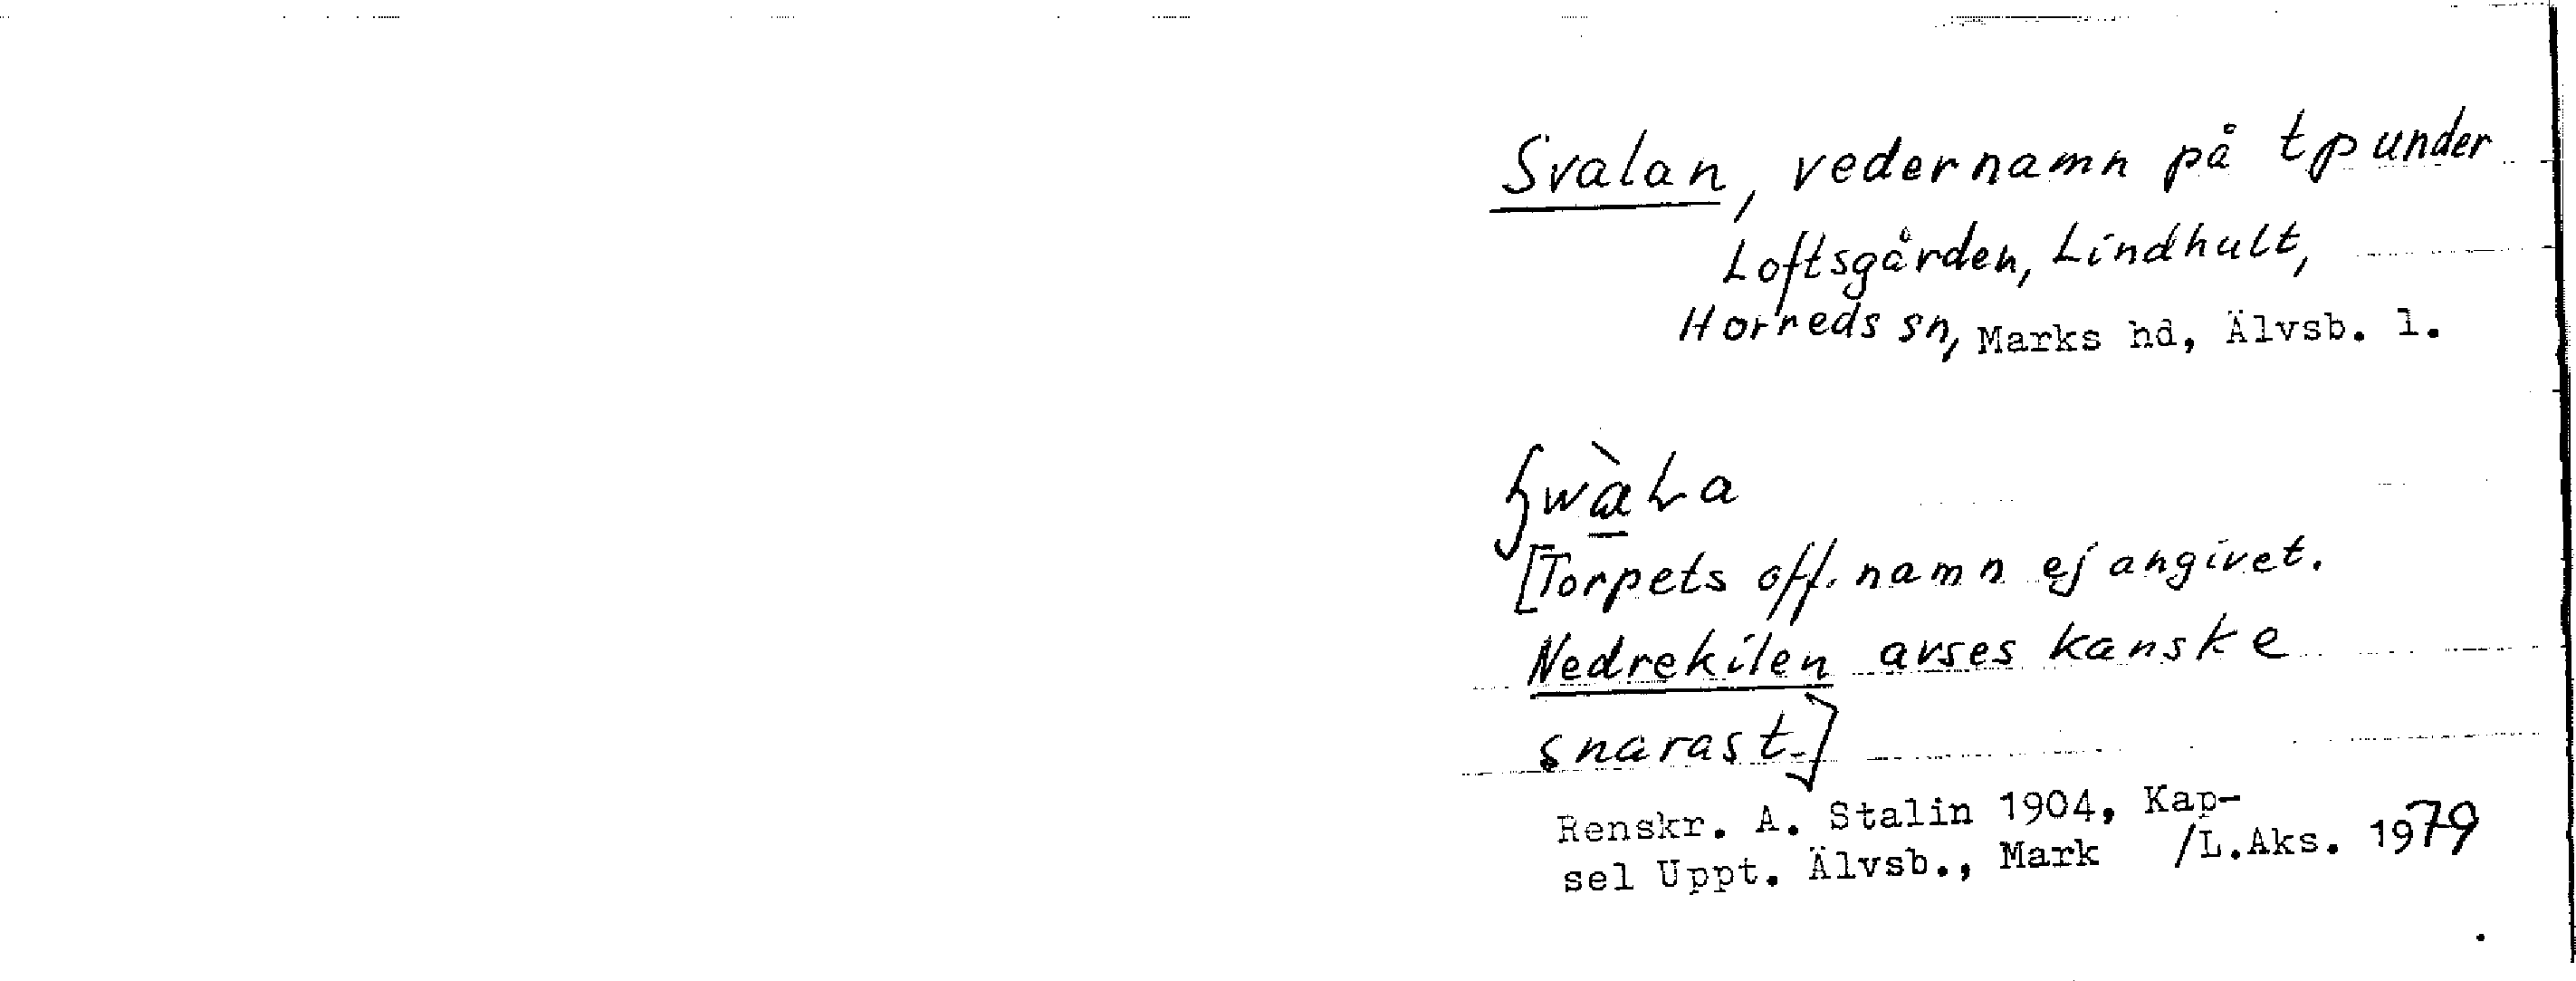 Svalan, vedernamn på tp under
Loftsgården, Lindhult,
Horreds sn, Marks hd, Älvsb. l.
[Torpets off. namn ej angivet.
Nedrekilen avses kanske
snarast.]
Renskr. A. Stalin 1904, Kap-
sel Uppt. Älvsb., Mark /L.Aks. 1979